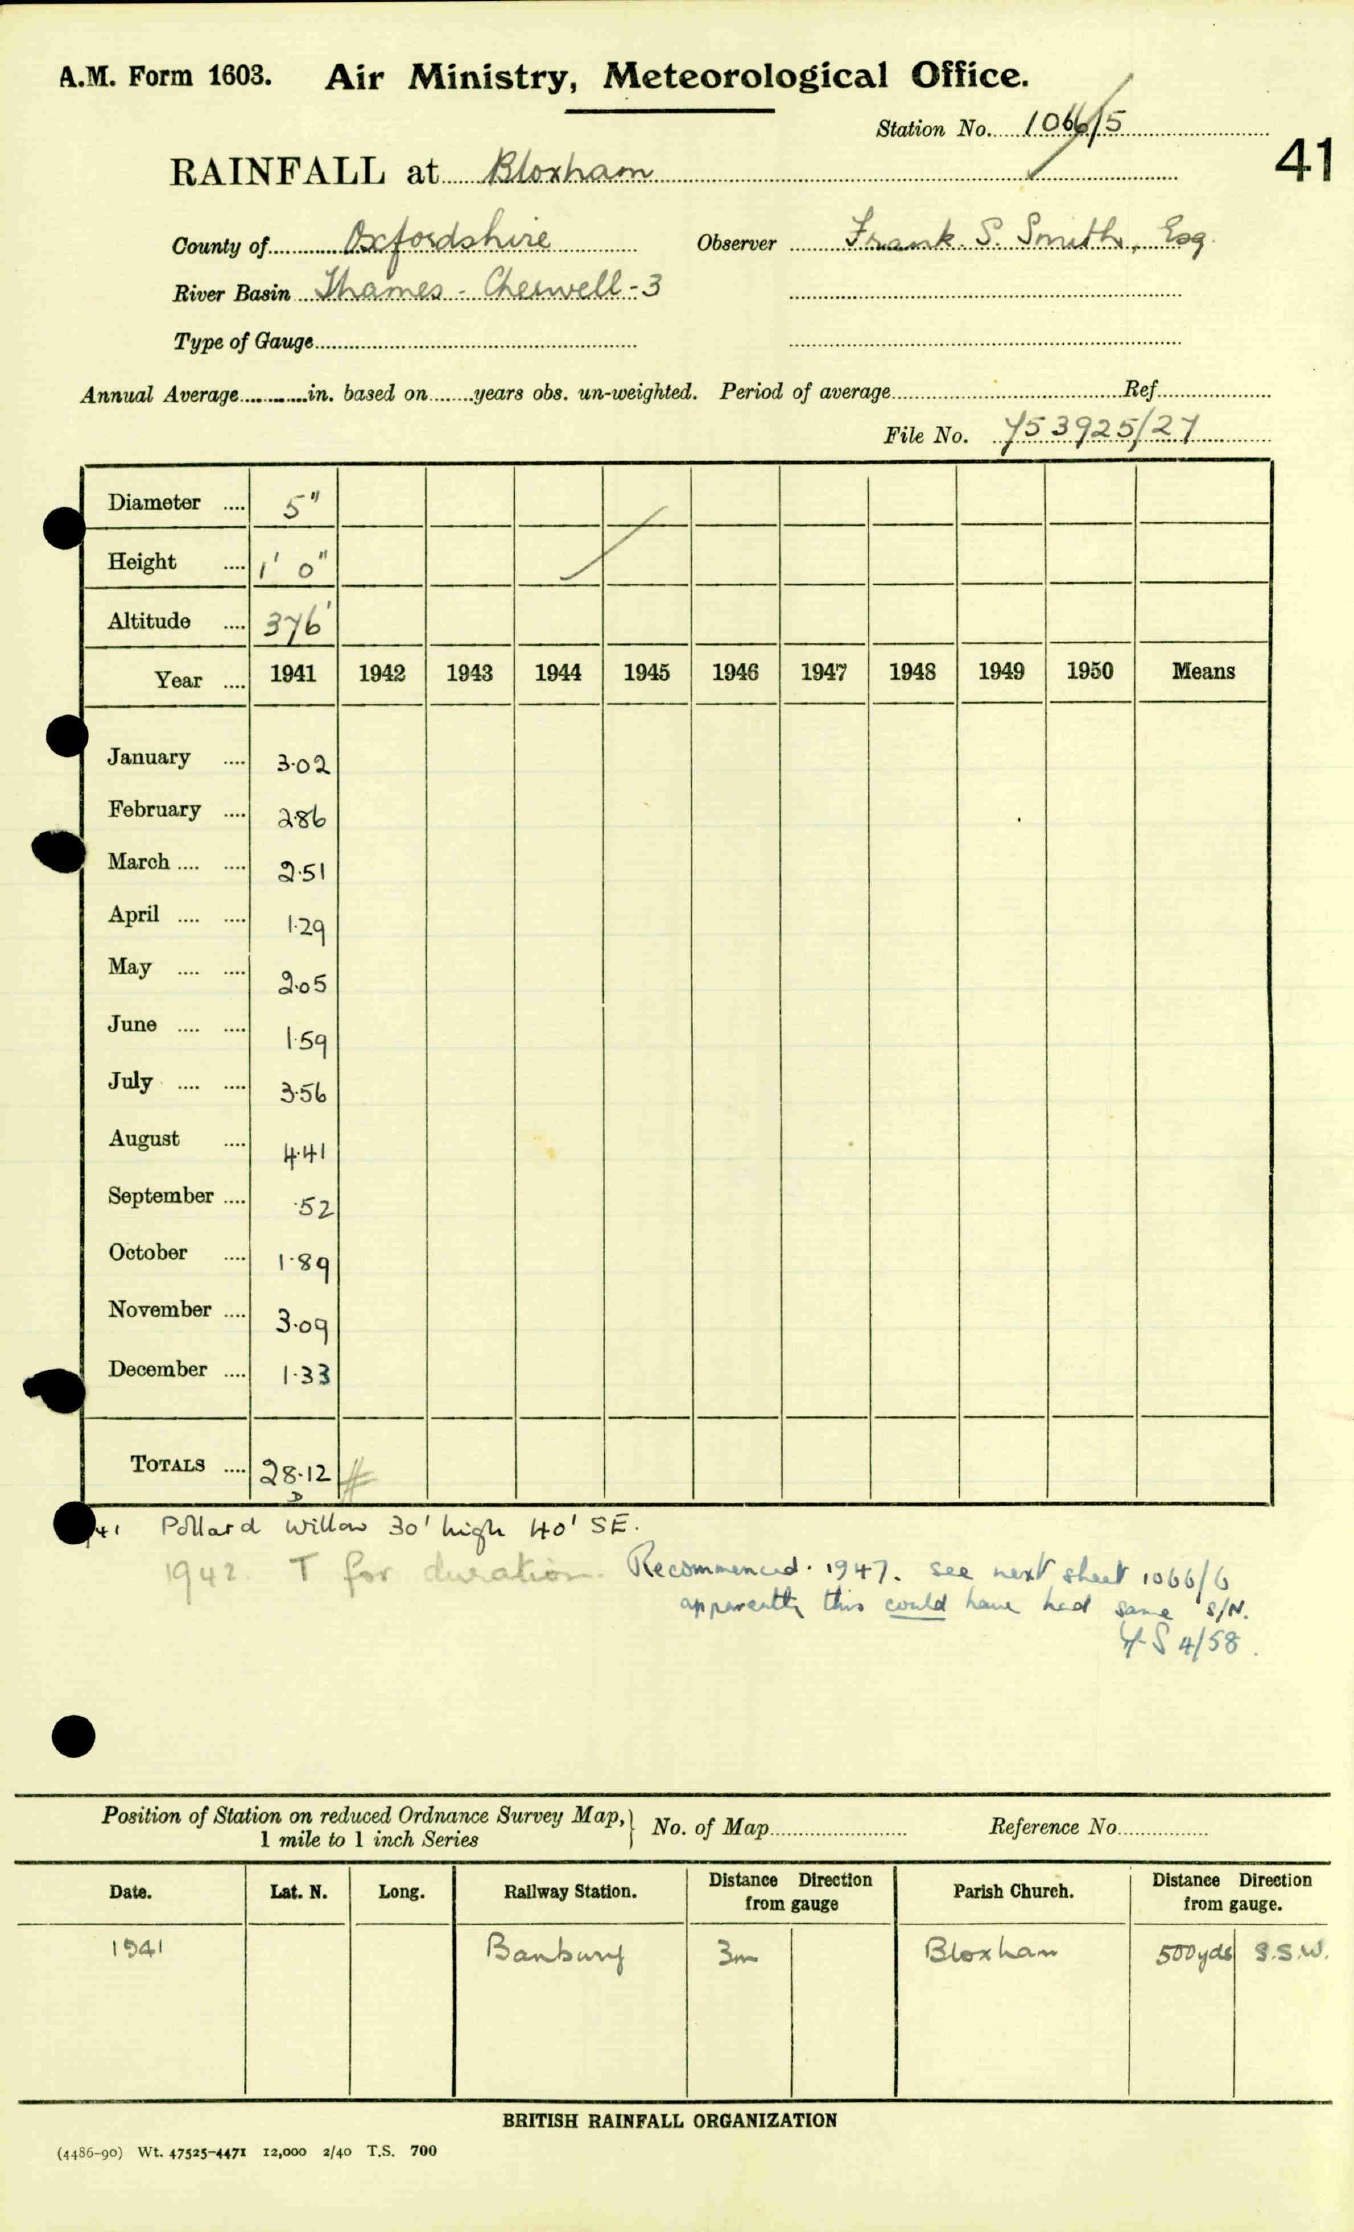 A.M. Form 1603. Air Ministry, Meteorological Office.
Station No. 1066/5
41
RAINFALL at Bloxham
County of Oxfordshire Observer Frank. S. Smith, Esq.
River Basin Thames - Cherwell - 3
Type of Gauge
Annual Average in. based on years obs. un-weighted. Period of average Ref
File No. 753925/27
Diameter 5"
Height 1' 0"
Altitude 376'
Year 1941 1942 1943 1944 1945 1946 1947 1948 1949 1950 Means
January 3.02
February 2.86
March 2.51
April 1.29
May 2.05
June 1.59
July 3.56
August 4.41
September .52
October 1.89
November 3.09
December 1.33
TOTALS 28.12 #
D
41 Pollard Willow 30' high 40' SE.
1942. T for duration. Recommenced. 1947. see next sheet 1066/6
apparently this could have had same S/N.
4/58.
Position of Station on reduced Ordnance Survey Map, } No. of Map Reference No
1 mile to 1 inch Series
Date. Lat. N. Long. Railway Station. Distance Direction from gauge Parish Church. Distance Direction from gauge.
1941 Banbury 3m Bloxham 500yds S.S.W.
BRITISH RAINFALL ORGANIZATION
(4486-90) Wt. 47525-4471 12,000 2/40 T.S. 700